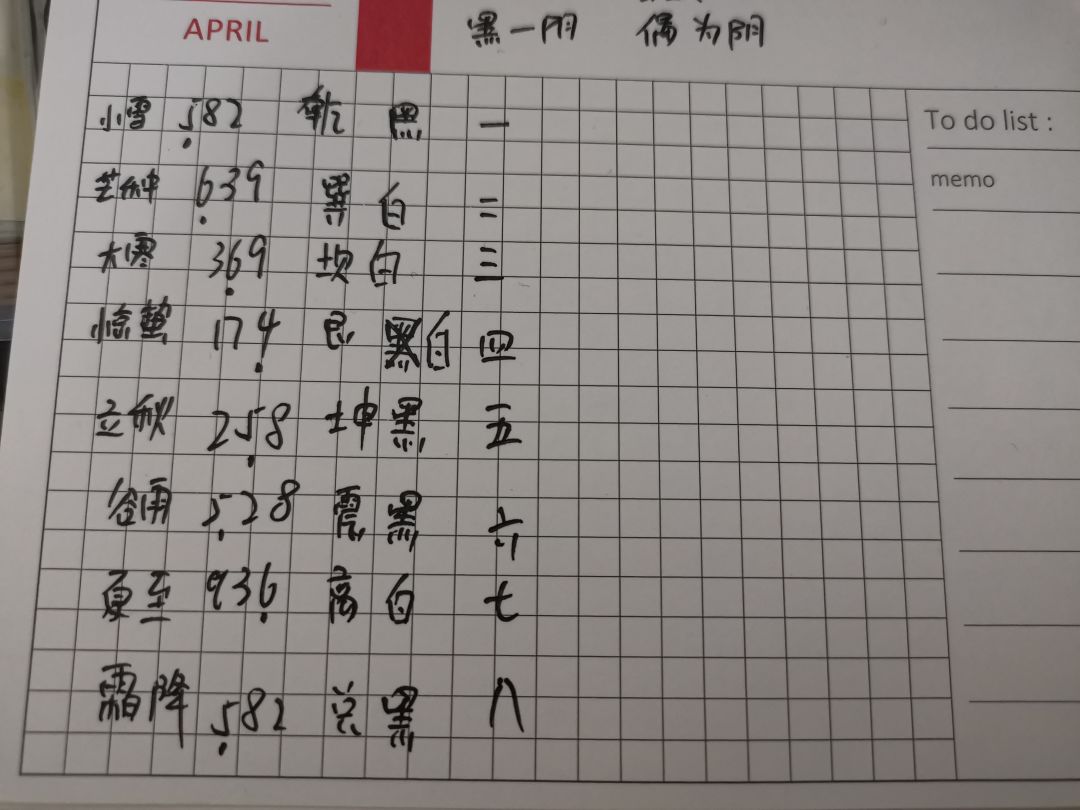 APRIL
黑一阴 偶为阴
小雪 582 乾 黑 一
芒种 639 巽 白 二
大寒 369 坎 白 三
惊蛰 174 艮 白 四
立秋 258 坤 黑 五
谷雨 528 震 黑 六
夏至 936 离 白 七
霜降 582 兑 黑 八
To do list :
memo